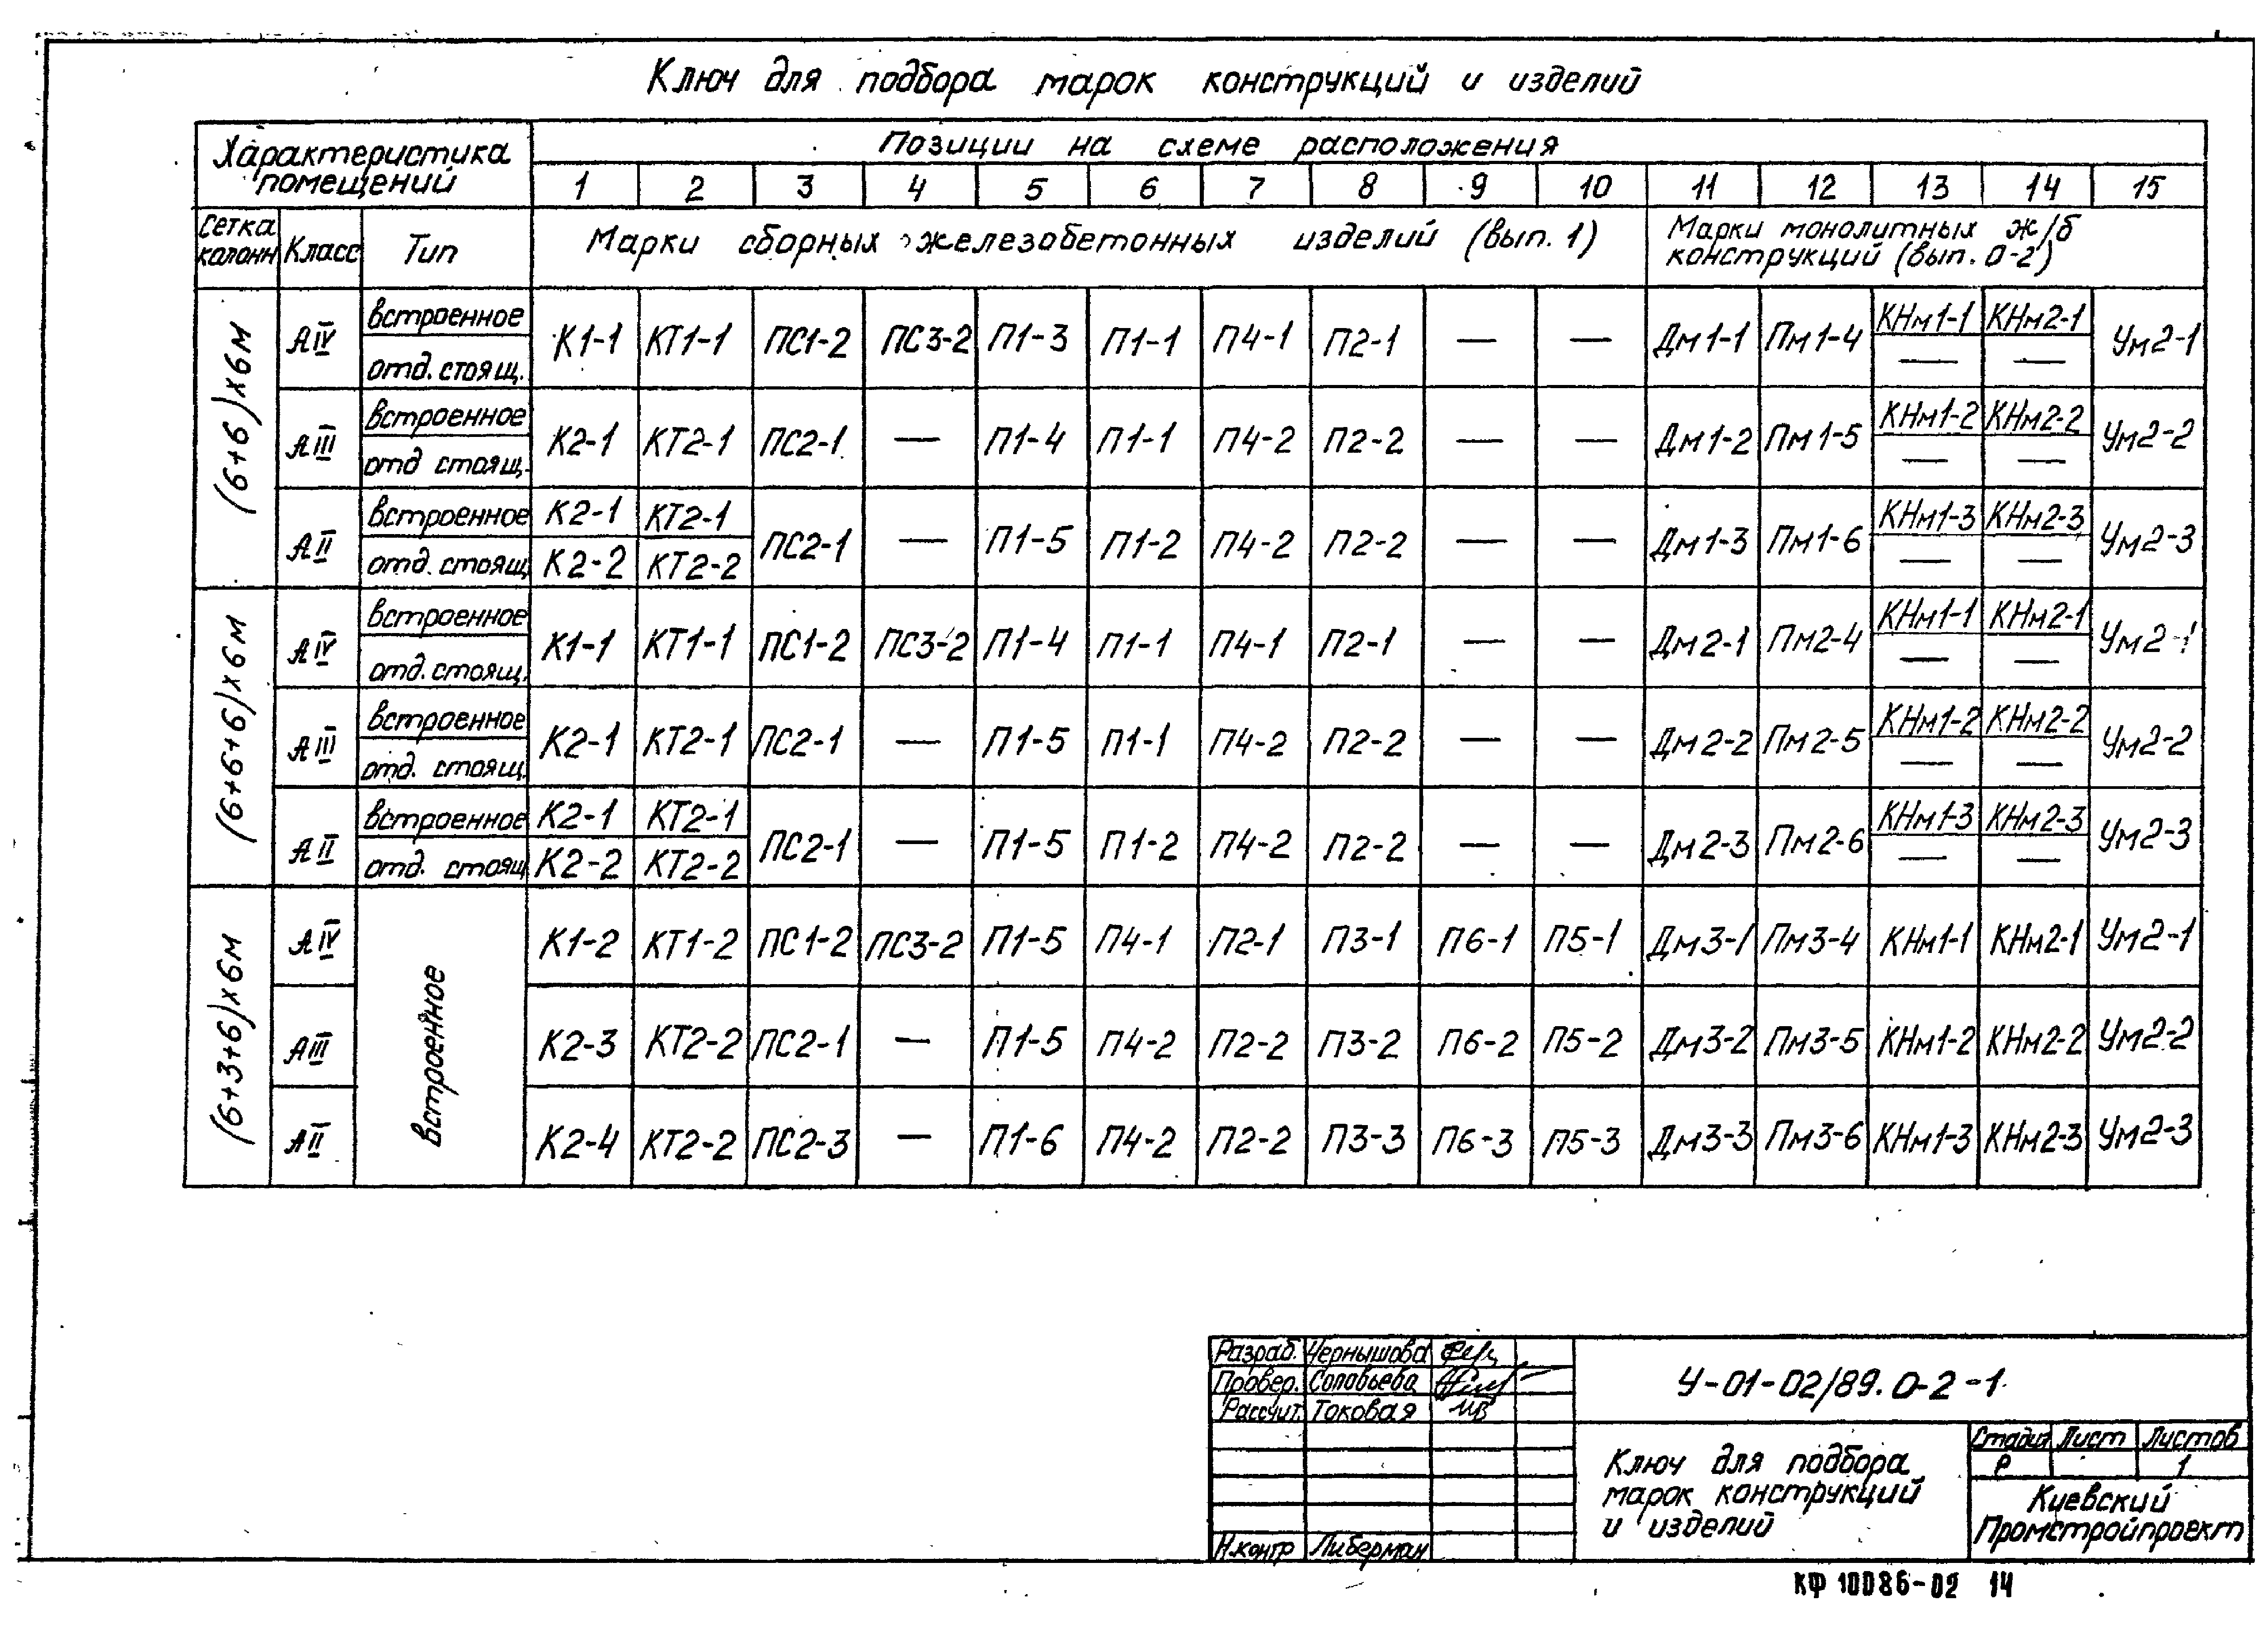 Ключ для подбора марок конструкций и изделий
Характеристика помещений
Позиции на схеме расположения
1 2 3 4 5 6 7 8 9 10 11 12 13 14 15
Сетка колонн Класс Тип
Марки сборных железобетонных изделий (вып. 1)
Марки монолитных ж/б
конструкций (вып. 0-2)
(6+6)х6м
АIV встроенное К1-1 КТ1-1 ПС1-2 ПС3-2 П1-3 П1-1 П4-1 П2-1 — — Дм1-1 Пм1-4 КНм1-1 КНм2-1 Ум2-1
отд. стоящ. — —
АIII встроенное К2-1 КТ2-1 ПС2-1 — П1-4 П1-1 П4-2 П2-2 — — Дм1-2 Пм1-5 КНм1-2 КНм2-2 Ум2-2
отд стоящ. — —
АII встроенное К2-1 КТ2-1 ПС2-1 — П1-5 П1-2 П4-2 П2-2 — — Дм1-3 Пм1-6 КНм1-3 КНм2-3 Ум2-3
отд. стоящ К2-2 КТ2-2 — —
(6+6+6)х6м
АIV встроенное К1-1 КТ1-1 ПС1-2 ПС3-2 П1-4 П1-1 П4-1 П2-1 — — Дм2-1 Пм2-4 КНм1-1 КНм2-1 Ум2-1
отд. стоящ. — —
АIII встроенное К2-1 КТ2-1 ПС2-1 — П1-5 П1-1 П4-2 П2-2 — — Дм2-2 Пм2-5 КНм1-2 КНм2-2 Ум2-2
отд. стоящ. — —
АII встроенное К2-1 КТ2-1 ПС2-1 — П1-5 П1-2 П4-2 П2-2 — — Дм2-3 Пм2-6 КНм1-3 КНм2-3 Ум2-3
отд. стоящ К2-2 КТ2-2 — —
(6+3+6)х6м
встроенное
АIV К1-2 КТ1-2 ПС1-2 ПС3-2 П1-5 П4-1 П2-1 П3-1 П6-1 П5-1 Дм3-1 Пм3-4 КНм1-1 КНм2-1 Ум2-1
АIII К2-3 КТ2-2 ПС2-1 — П1-5 П4-2 П2-2 П3-2 П6-2 П5-2 Дм3-2 Пм3-5 КНм1-2 КНм2-2 Ум2-2
АII К2-4 КТ2-2 ПС2-3 — П1-6 П4-2 П2-2 П3-3 П6-3 П5-3 Дм3-3 Пм3-6 КНм1-3 КНм2-3 Ум2-3
Разраб. Чернышова
Провер. Соловьева
Рассчит. Токовая
Н.контр Либерман
У-01-02/89.0-2-1
Ключ для подбора
марок конструкций
и изделий
Стадия Лист Листов
Р 1
Киевский
Промстройпроект
КФ 10086-02 14